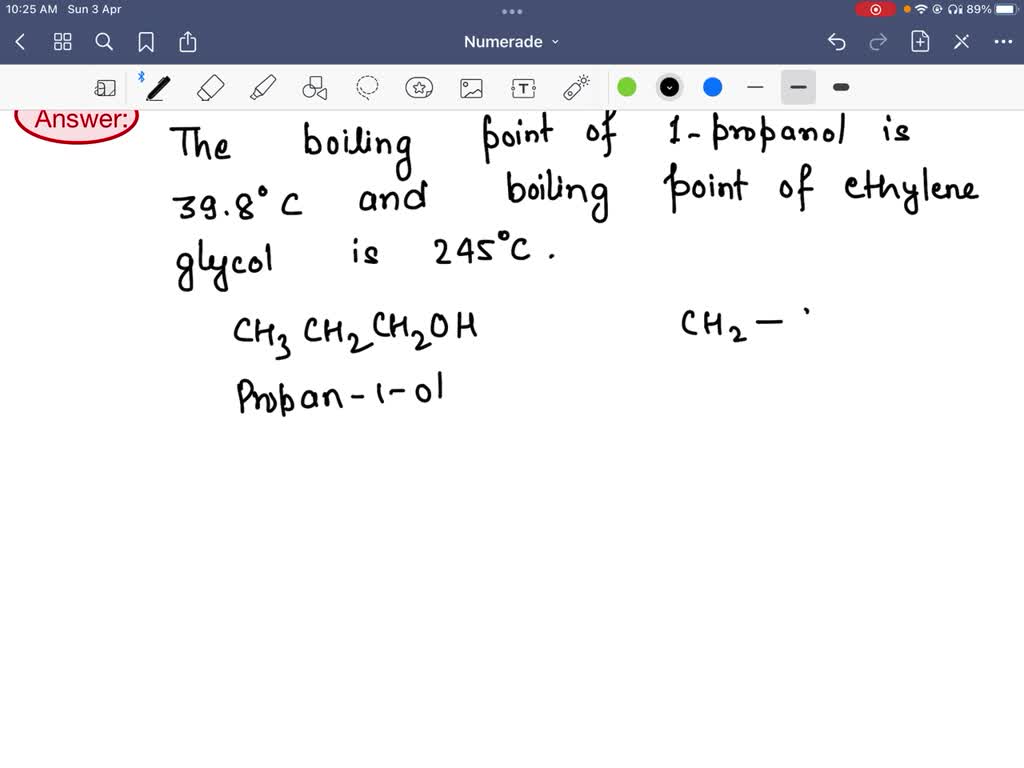 10:25 AM Sun 3 Apr
89%
Numerade
T
Answer:
The boiling point of 1-propanol is
39.8°C and boiling point of ethylene
glycol is 245°C.
CH3 CH2 CH2OH CH2 —
Propan-1-ol